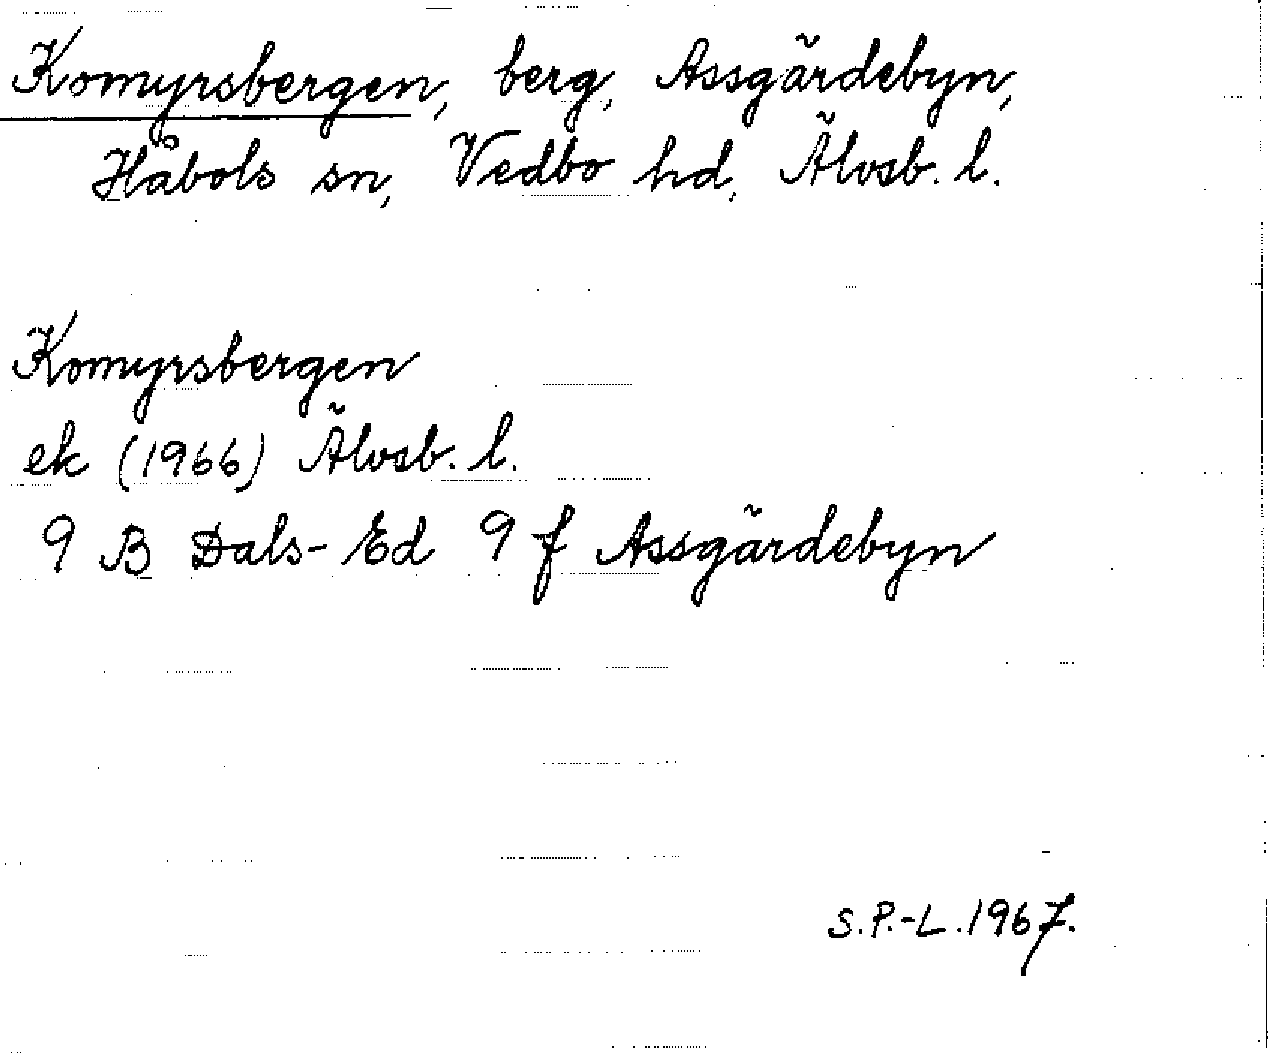 Komyrsbergen, berg, Assgärdebyn,
Håbols sn, Vedbo hd, Älvsb. l.
Komyrsbergen
ek (1966) Älvsb. l.
9 B Dals-Ed 9 f Assgärdebyn
S.P.-L. 1967.